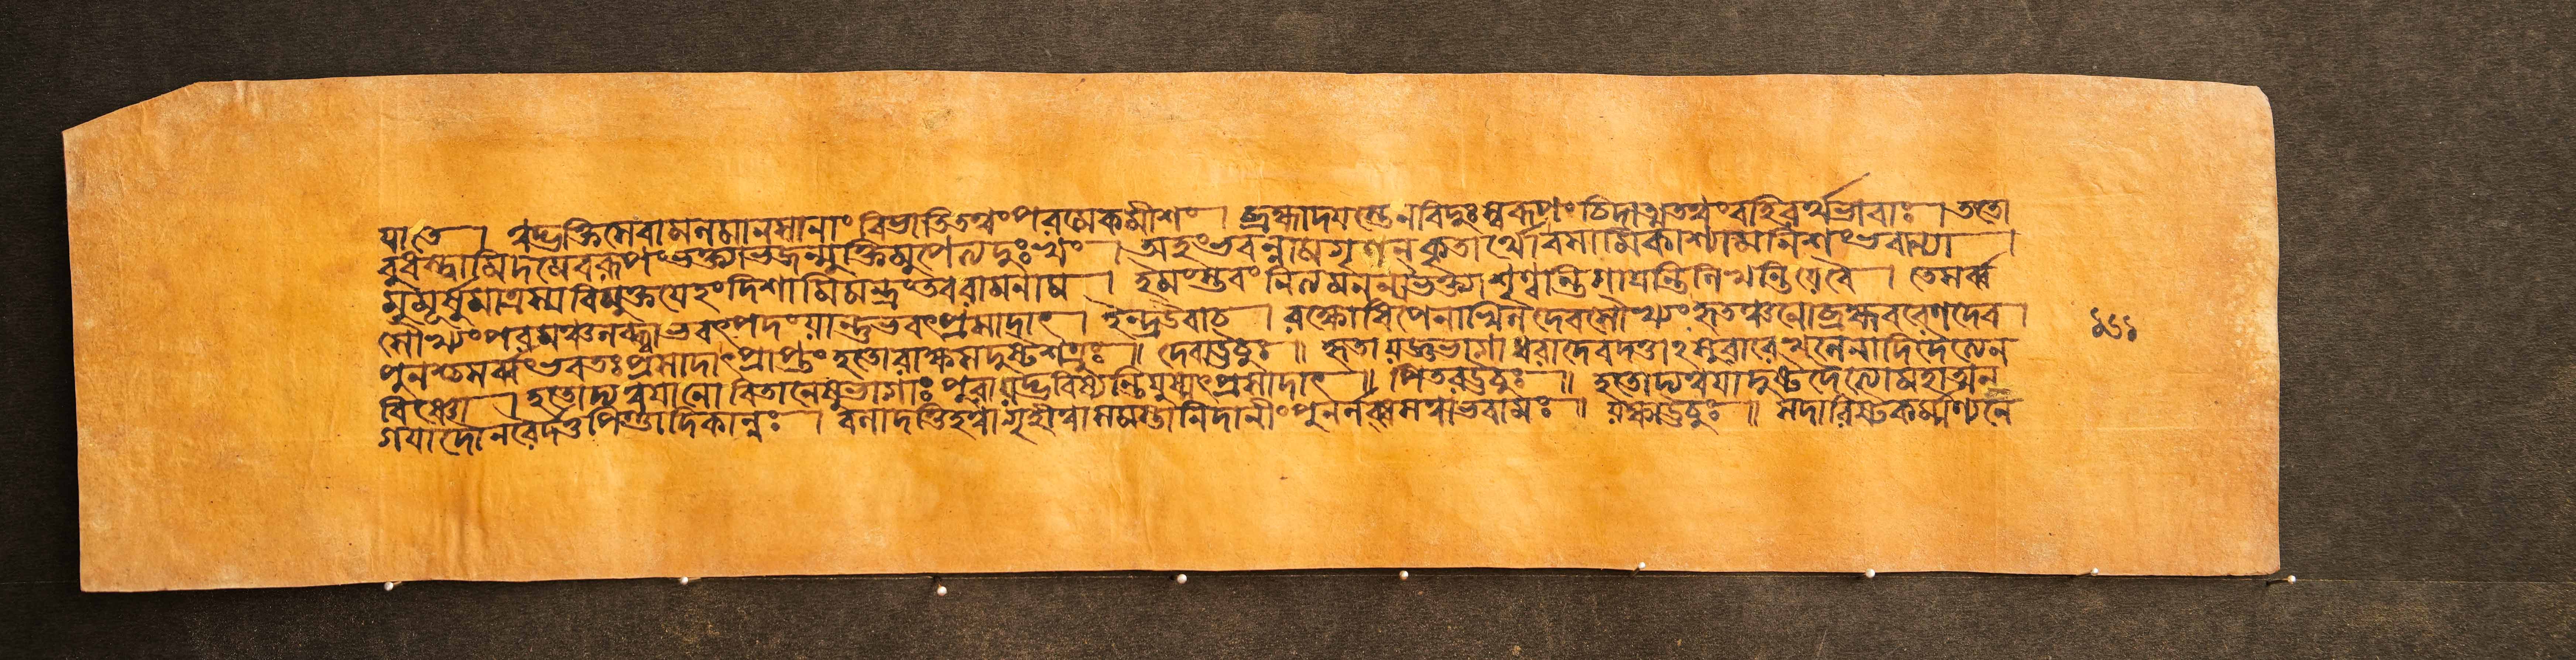 যাতে । ত্বদ্ভক্তিসেবামলমানসানাং বিভাতিতত্ত্বংপৰমেকমীশং । ব্রহ্মাদযস্তেনবিদুঃস্বৰূপংচিদাত্মতত্ত্বংবহিৰর্থভাবাঃ । ততো
বুধস্ত্বামিদমেবৰূপংভক্ত্যাভজন্মুক্তিমুপৈত্যদুঃখং । অহংভবন্নামগৃণনকৃতার্থোবসামিকাশ্যামনিশংভবান্যা ।
মুমূর্ষমাণস্যবিমুক্তয়েহংদিশামিমন্ত্রংতবৰামনাম । ইমংস্তবংনিত্যমনন্যভক্ত্যাশৃণ্বন্তিগায়ন্তিলিখন্তিয়েবৈ । তেসর্ব্ব
সৌখ্যংপৰমঞ্চলব্ধ্বাভবৎপদংয়ান্তুভবৎপ্রসাদাৎ । ইন্দ্রউবাচ । ৰক্ষোধিপেনাখিলদেবসৌখ্যংহৃতঞ্চমেব্রহ্মবৰেণদেব ।
পুনশ্চসর্ব্বংভবতঃপ্রসাদাৎপ্রাপ্তংহতোৰাক্ষসদুষ্টশত্রুঃ ॥ দেবাঊচুঃ ॥ হৃতায়জ্ঞভাগাধৰাদেবদত্তাঃমুৰাৰেখলেনাদিদৈত্যেন
বিষ্ণো । হতোদ্যত্বয়ানোবিতানেষুভাগাঃপুৰাবদ্ভবিষ্যন্তিয়ুষ্মৎপ্রসাদাৎ ॥ পিতৰঊচুঃ ॥ হতোদ্যত্বয়াদুষ্টদৈত্যোমহাত্মন
গয়াদৌনৰৈর্দত্তপিণ্ডাদিকান্নঃ । বলাদত্তিহত্বাগৃহীত্বাসমস্তানিদানীংপুনর্লব্ধসত্বাভবামঃ ॥ য়ক্ষাঊচুঃ ॥ সদাবিষ্টিকর্ম্মণ্যনে